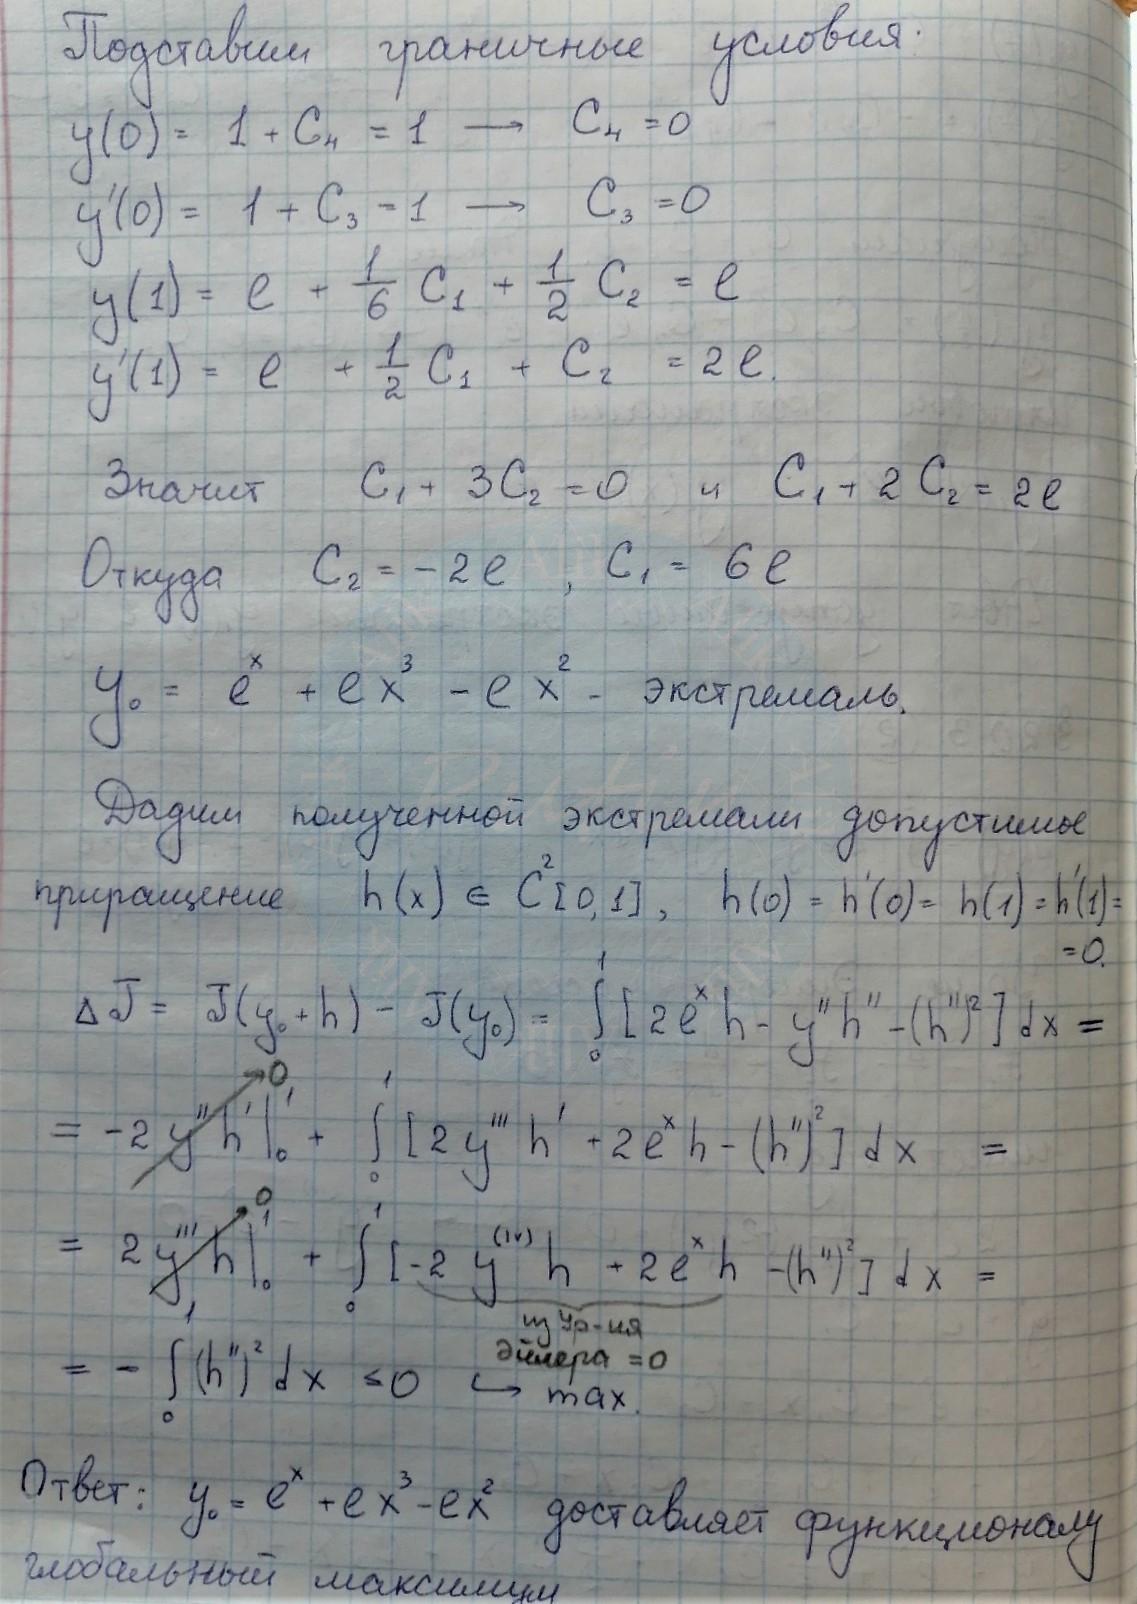 Подставим граничные условия:
y(0) = 1 + C₄ = 1 → C₄ = 0
y'(0) = 1 + C₃ = 1 → C₃ = 0
y(1) = e + 1/6 C₁ + 1/2 C₂ = e
y'(1) = e + 1/2 C₁ + C₂ = 2e.
Значит C₁ + 3C₂ = 0 и C₁ + 2C₂ = 2e
Откуда C₂ = -2e, C₁ = 6e
y₀ = eˣ + ex³ - ex² - экстремаль.
Дадим полученной экстремали допустимое
приращение h(x) ∈ C²[0,1], h(0) = h'(0) = h(1) = h'(1) =
= 0.
ΔJ = J(y₀+h) - J(y₀) = ∫₀¹ [2eˣh - y''h'' - (h'')²] dx =
= -2y''h'|₀¹ → 0 + ∫₀¹ [2y'''h' + 2eˣh - (h'')²] dx =
= 2y'''h|₀¹ → 0 + ∫₀¹ [-2y⁽ᴵⱽ⁾h + 2eˣh - (h'')²] dx =
из Ур-ия
Эйлера = 0
= - ∫₀¹ (h'')² dx ≤ 0 ↪ max.
Ответ: y₀ = eˣ + ex³ - ex² доставляет функционалу
глобальный максимум